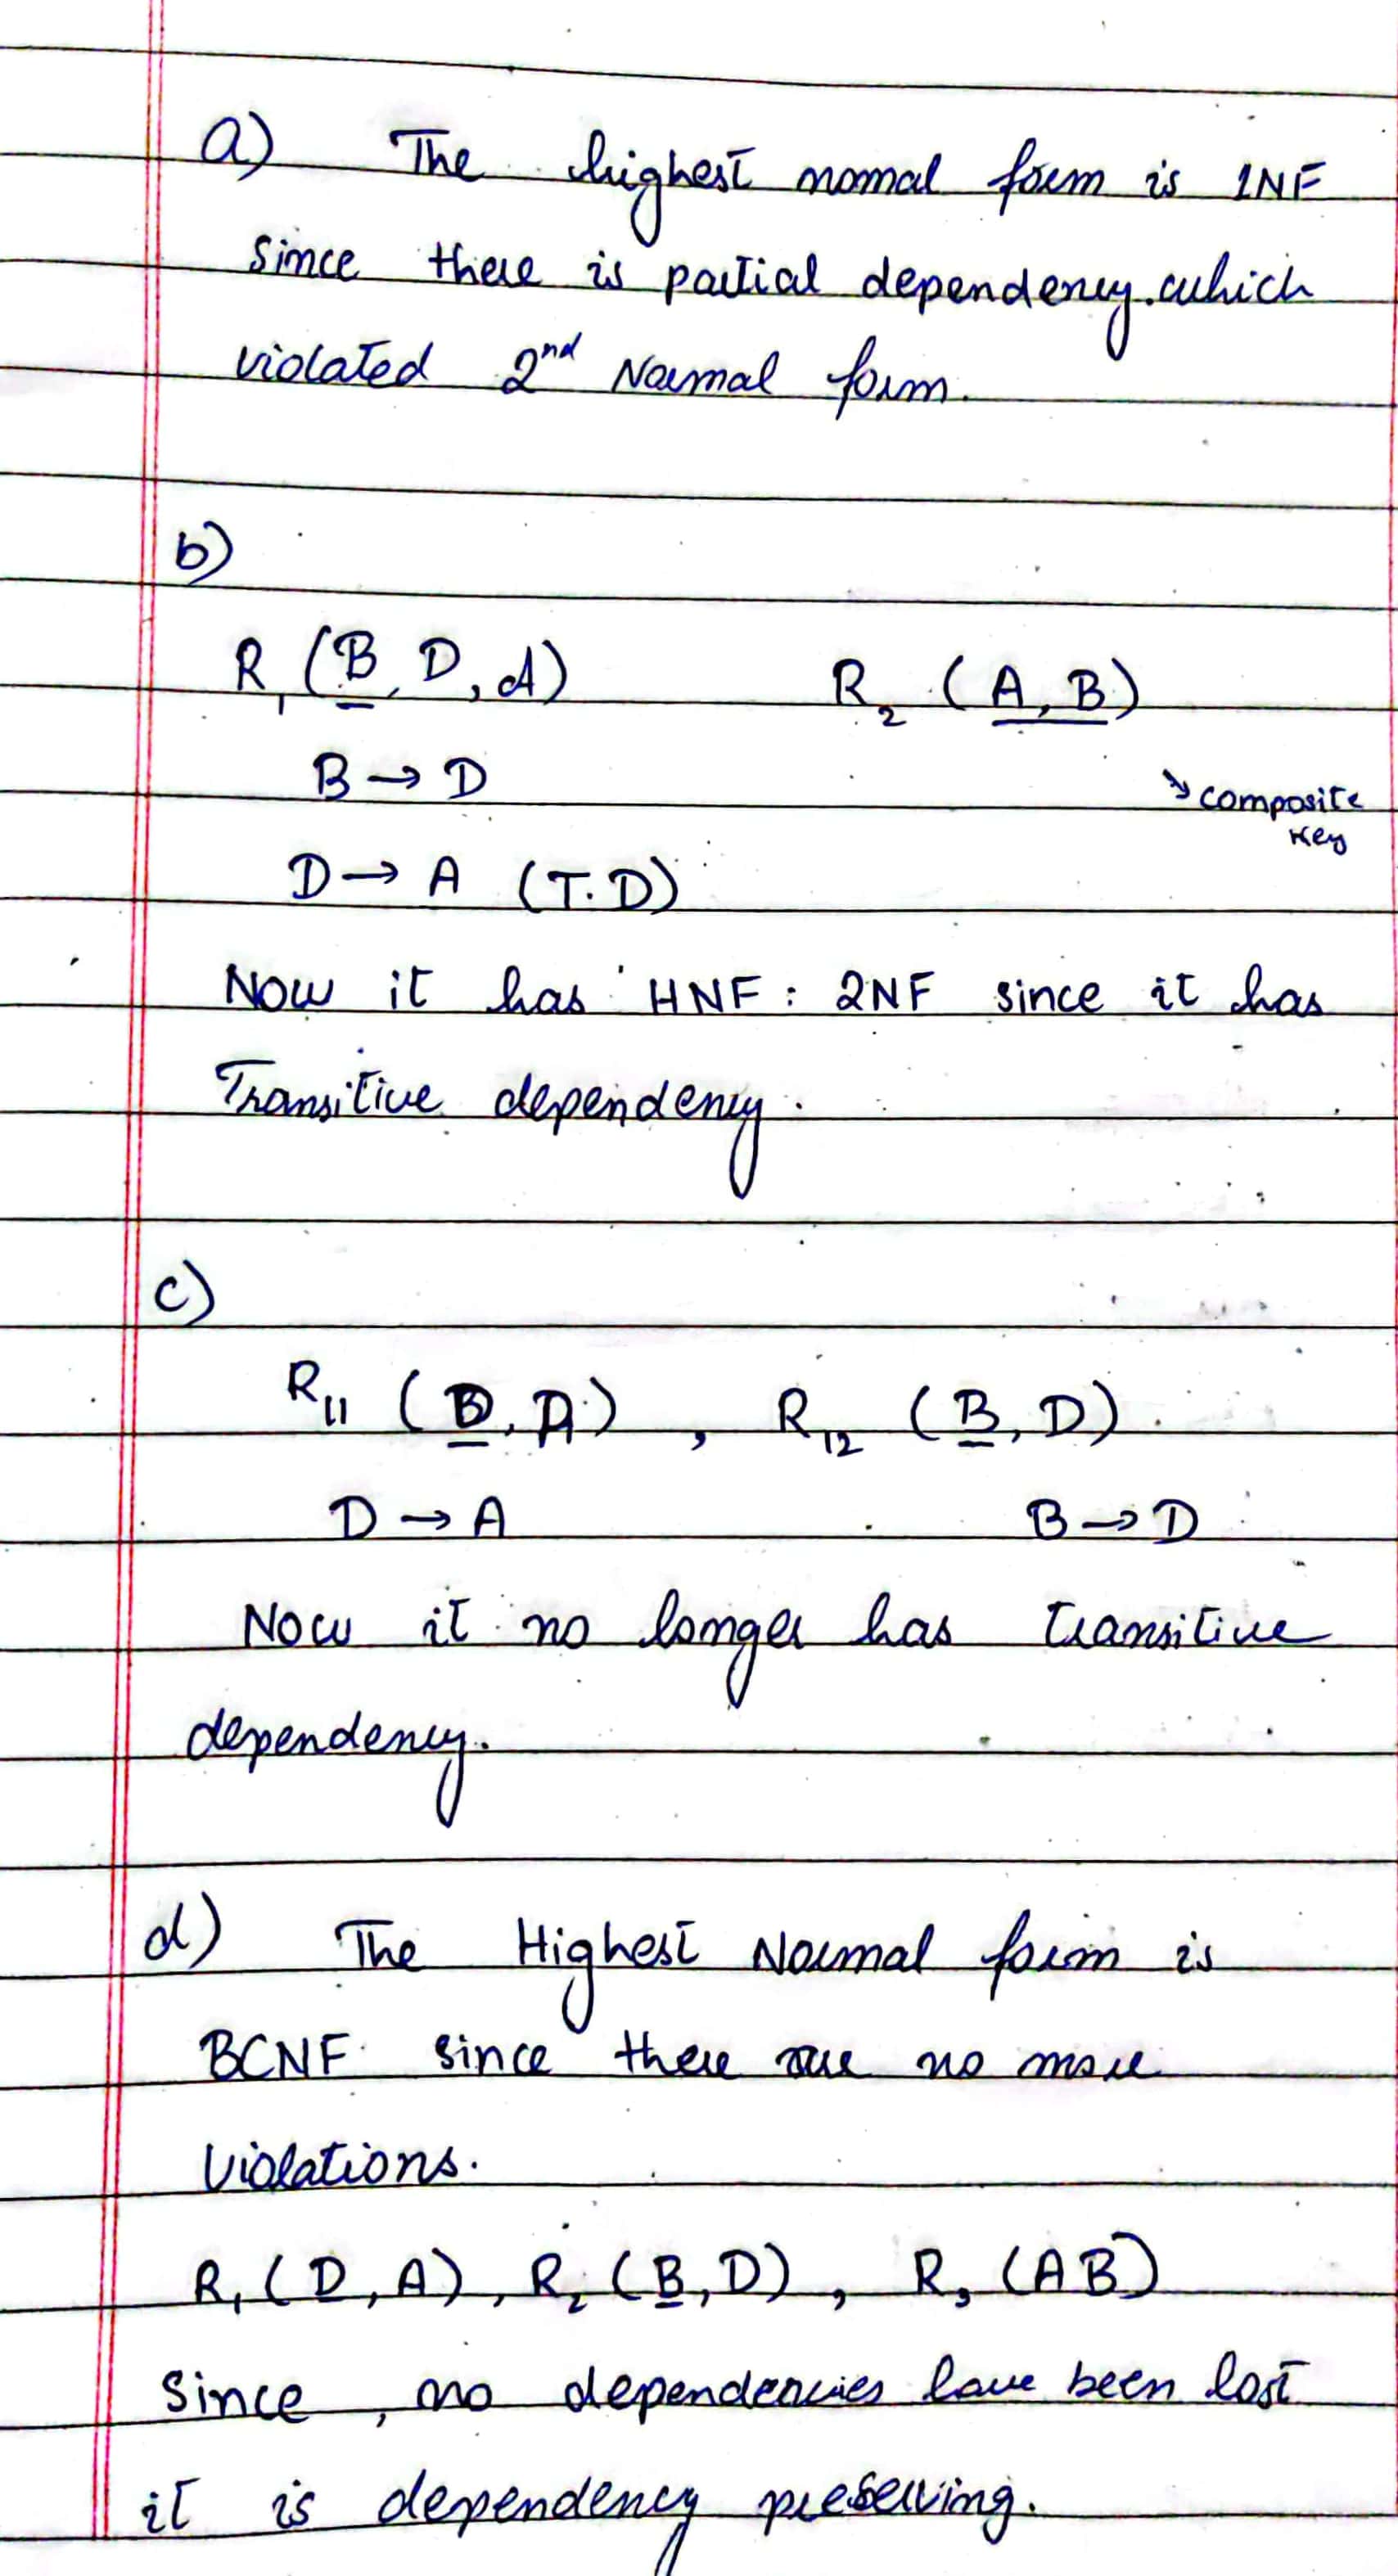 a) The highest nomal form is 1NF
Since there is partial dependency.which
violated 2nd Normal form.
b)
R1 (B, D, A) R2 (A, B)
B → D
↘ composite
key
D → A (T.D)
Now it has HNF: 2NF since it has
Transitive dependency.
c)
R11 (D, A), R12 (B, D).
D → A B → D
Now it no longer has transitive
dependency.
d) The Highest Normal form is
BCNF since there are no more
violations.
R1 (D, A), R2 (B, D), R3 (AB)
Since, no dependencies have been lost
it is dependency preserving.